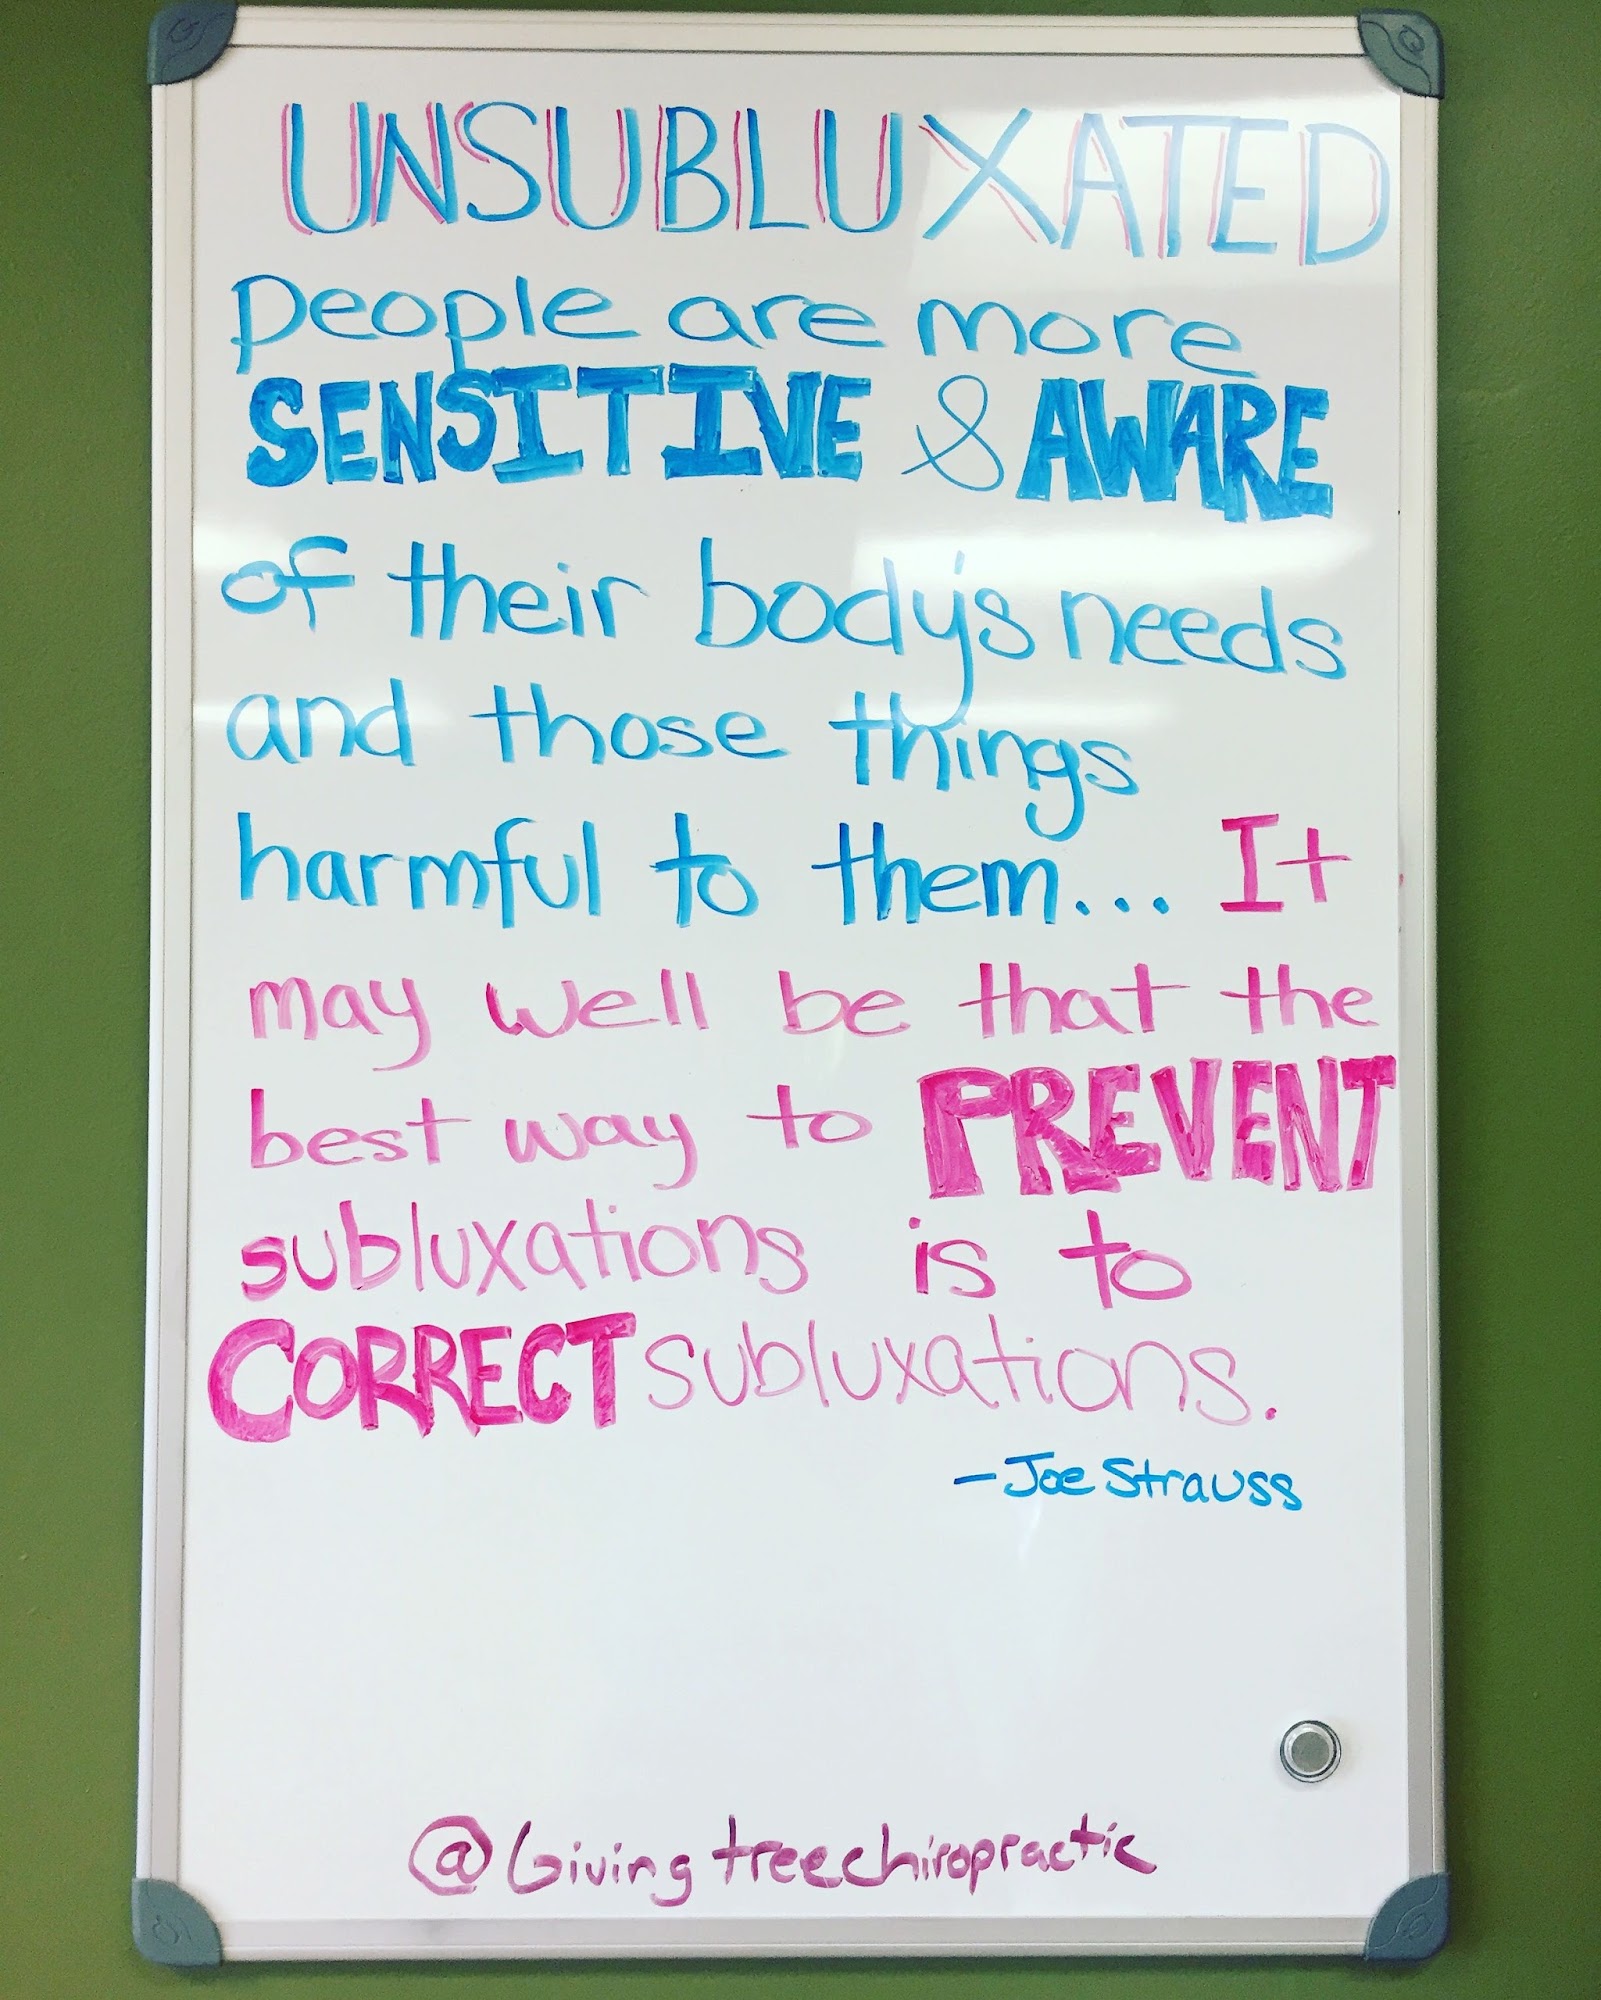 UNSUBLUXATED
people are more
SENSITIVE & AWARE
of their body's needs
and those things
harmful to them... It
may well be that the
best way to PREVENT
subluxations is to
CORRECT subluxations.
- Joe Strauss
@Givingtreechiropractic